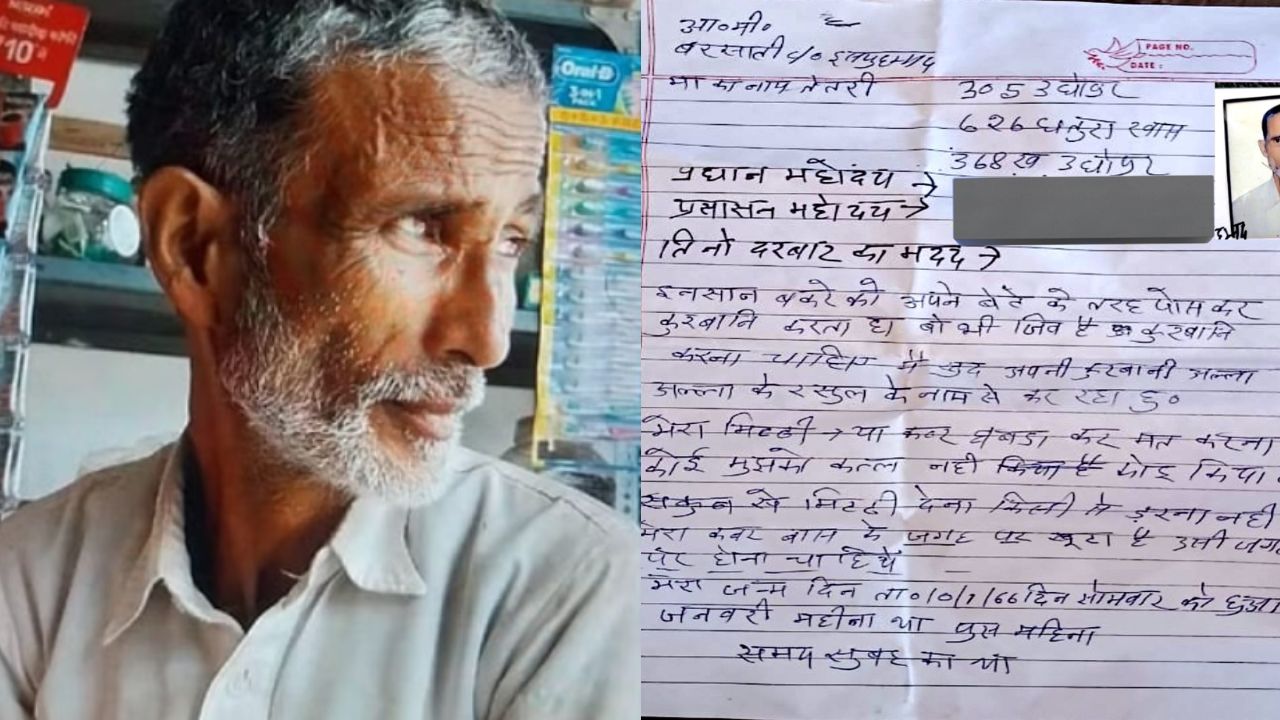 ₹10
Oral-B
3-in-1
PACK
PAGE NO.
DATE :
आ०मी०
बरसाती
मा का नाम तेतरी
305 उधोपुर
626 धतुरा खाम
368ख उधोपुर
प्रधान महोदय →
प्रसासन महोदय →
तिनो दरबार का मदद →
इनसान बकरे को अपने बेटे के तरह पोस कर
कुरबानि करता है। वो भी जिव है कुरबानि
करना चाहिए मै खुद अपनी कुरबानी अल्ला
अल्ला के रसुल के नाम से कर रहा हु०
मेरा मिटटी → या कबर घबडा कर मत करना
कोई मुझको कत्ल नही किया है
सकुन से मिटटी देना किसी से डरना नही
मेरा कबर बास के जगह पर खुटा है उसी जगह
पर होना चाहिये
मेरा जन्म दिन ता०10/1/66 दिन सोमवार को हुआ
जनवरी महीना था पुस महिना
समय सुबह का था